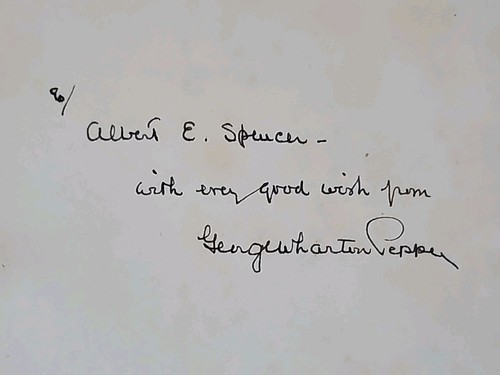 To/
Albert E. Spencer –
with every good wish from
George Wharton Pepper